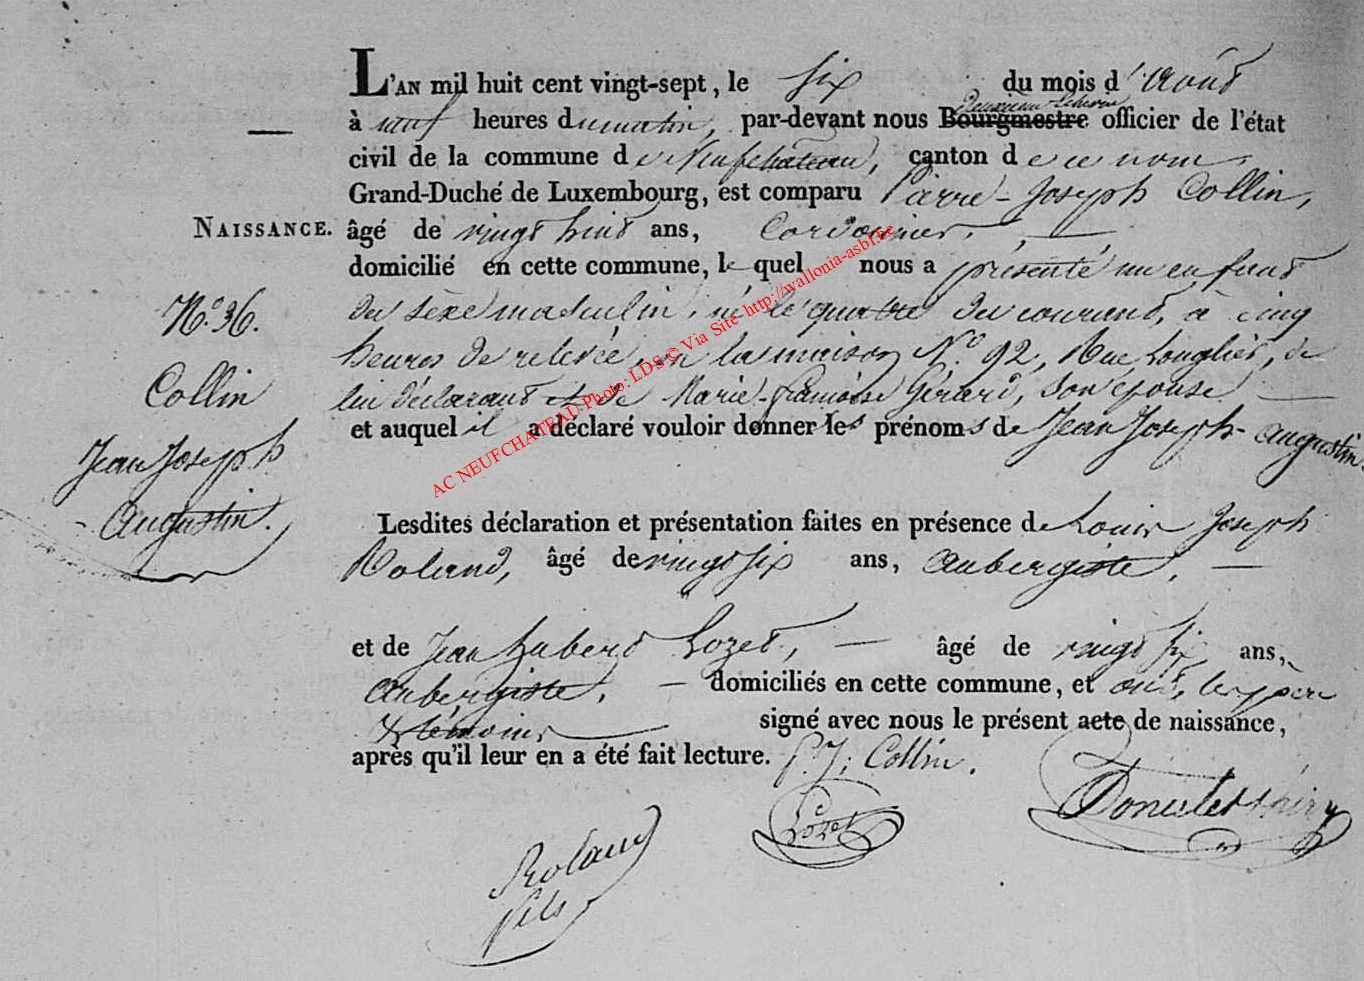 L'AN mil huit cent vingt-sept, le six du mois d'Août
à neuf heures du matin, par-devant nous Deuxième Echevin Bourgmestre officier de l'état
civil de la commune de Neufchateau, canton de ce nom
Grand-Duché de Luxembourg, est comparu Pierre-Joseph Collin,
NAISSANCE. âgé de vingt huit ans, Cordonnier,
domicilié en cette commune, le quel nous a présenté un enfant
N.o 36. du sèxe masculin, né le quatre du courant, à cinq
heures de relevée, en la maison N.o 92, Rue Longlier, de
Collin lui déclarant et de Marie-françoise Gérard, son épouse
et auquel il a déclaré vouloir donner les prénoms de Jean Joseph-Augustin.
Jean Joseph
Augustin.
Lesdites déclaration et présentation faites en présence de Louis Joseph
Roland, âgé de vingt six ans, Aubergiste,
et de Jean hubert Lozet, âgé de vingt six ans,
Aubergiste, domiciliés en cette commune, et ont, les père
& témoins signé avec nous le présent acte de naissance,
après qu'il leur en a été fait lecture. P. J. Collin.
Lozet
Roland
fils
AC NEUFCHATEAU Photo: LDS © Via Site http://wallonia-asbl.be